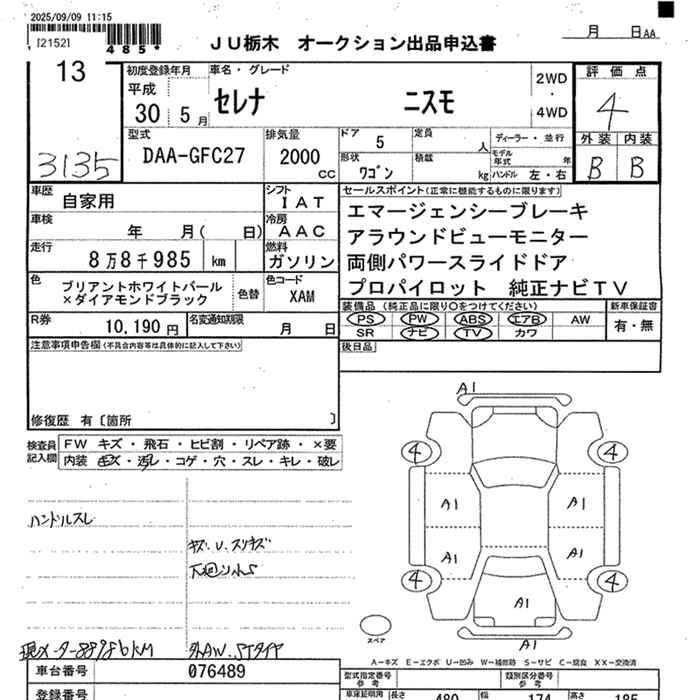 2025/09/09 11:15
[2152]
485*
JU栃木 オークション出品申込書
月 日AA
13
3135
初度登録年月
平成
30 5月
車名・グレード
セレナ ニスモ
2WD
・
4WD
評価点
4
外装 内装
B B
型式
DAA-GFC27
排気量
2000 cc
ドア 5
定員 人
形状 ワゴン
積載 kg
ディーラー・並行
モデル年式 年
ハンドル 左・右
車歴 自家用
シフト IAT
車検 年 月( 日)
冷房 AAC
走行 8万8千985 km
燃料 ガソリン
色 ブリアントホワイトパール
×ダイアモンドブラック
色替
色コード XAM
R券 10,190円
名変通知期限 月 日
セールスポイント(正常に機能するものに限ります)
エマージェンシーブレーキ
アラウンドビューモニター
両側パワースライドドア
プロパイロット 純正ナビTV
装備品(純正品に限り○をつけてください)
PS PW ABS エアB AW
SR ナビ TV カワ
新車保証書
有・無
後日品
注意事項申告欄(不具合内容等は具体的に記入して下さい)
修復歴 有〔箇所 〕
検査員記入欄
FW キズ・飛石・ヒビ割・リペア跡・×要
内装 毛入・汚レ・コゲ・穴・スレ・キレ・破レ
ハンドルスレ
キズ.U.スリキズ
現メーター88986KM
外AW.STタイヤ
A1
4 4
A1 A1
A1 A1
4 4
A1
A1
スペア
A-キズ E-エクボ U-凹み W-補修跡 S-サビ C-腐食 XX-交換済
車台番号 076489
登録番号
型式指定番号 参考
類別区分番号 参考
車庫証明用 長さ 480 幅 174 高さ 185